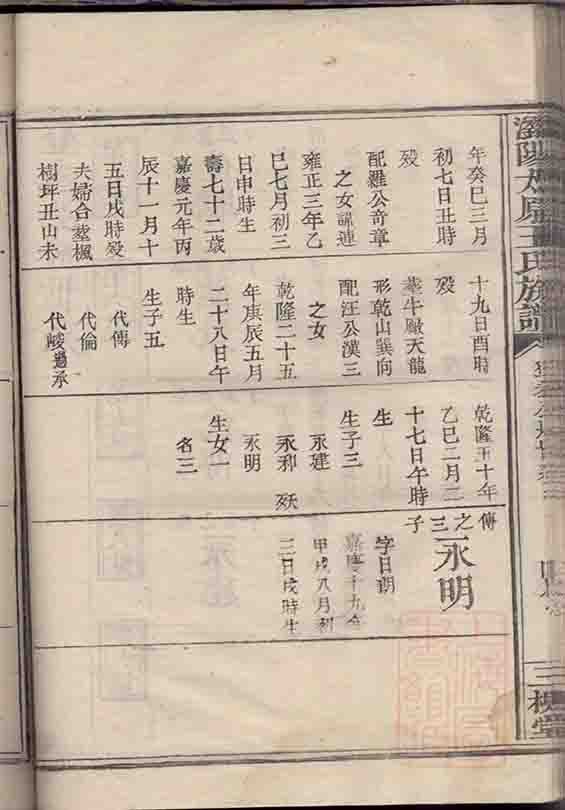 瀏陽太原王氏族譜
三槐堂
年癸巳三月
初七日丑時
歿
配羅公奇章
之女諡連
雍正三年乙
巳七月初三
日申時生
壽七十二歲
嘉慶元年丙
辰十一月十
五日戌時歿
夫婦合塟楓
樹坪丑山未
十九日酉時
歿
塟牛廠天龍
形乾山巽向
配汪公漢三
之女
乾隆二十五
年庚辰五月
二十八日午
時生
生子五
代傳
代倫
代峻過承
乾隆五十年
乙巳二月二
十七日午時
生
生子三
永建
永和 殀
永明
生女一
名三
傳之三子 永明
字日朝
嘉慶十九年
甲戌八月初
二日戌時生